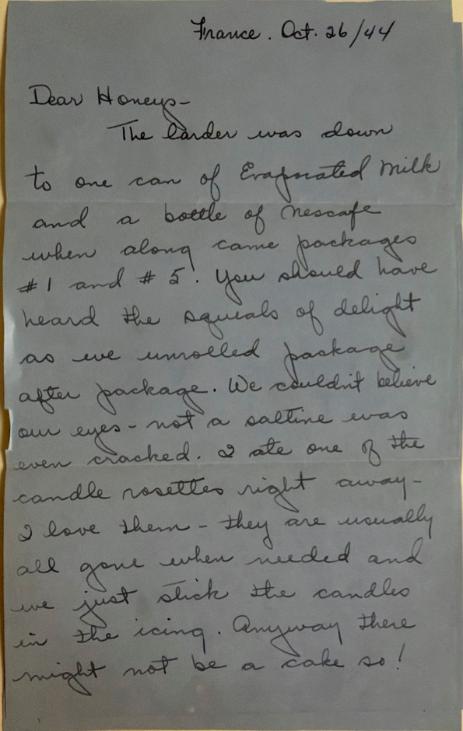 France. Oct. 26/44
Dear Honeys-
The larder was down
to one can of Evaporated Milk
and a bottle of Nescafe
when along came packages
#1 and #5. You should have
heard the squeals of delight
as we unrolled package
after package. We couldn't believe
our eyes - not a saltine was
even cracked. I ate one of the
candle rosettes right away -
I love them - they are usually
all gone when needed and
we just stick the candles
in the icing. Anyway there
might not be a cake so!